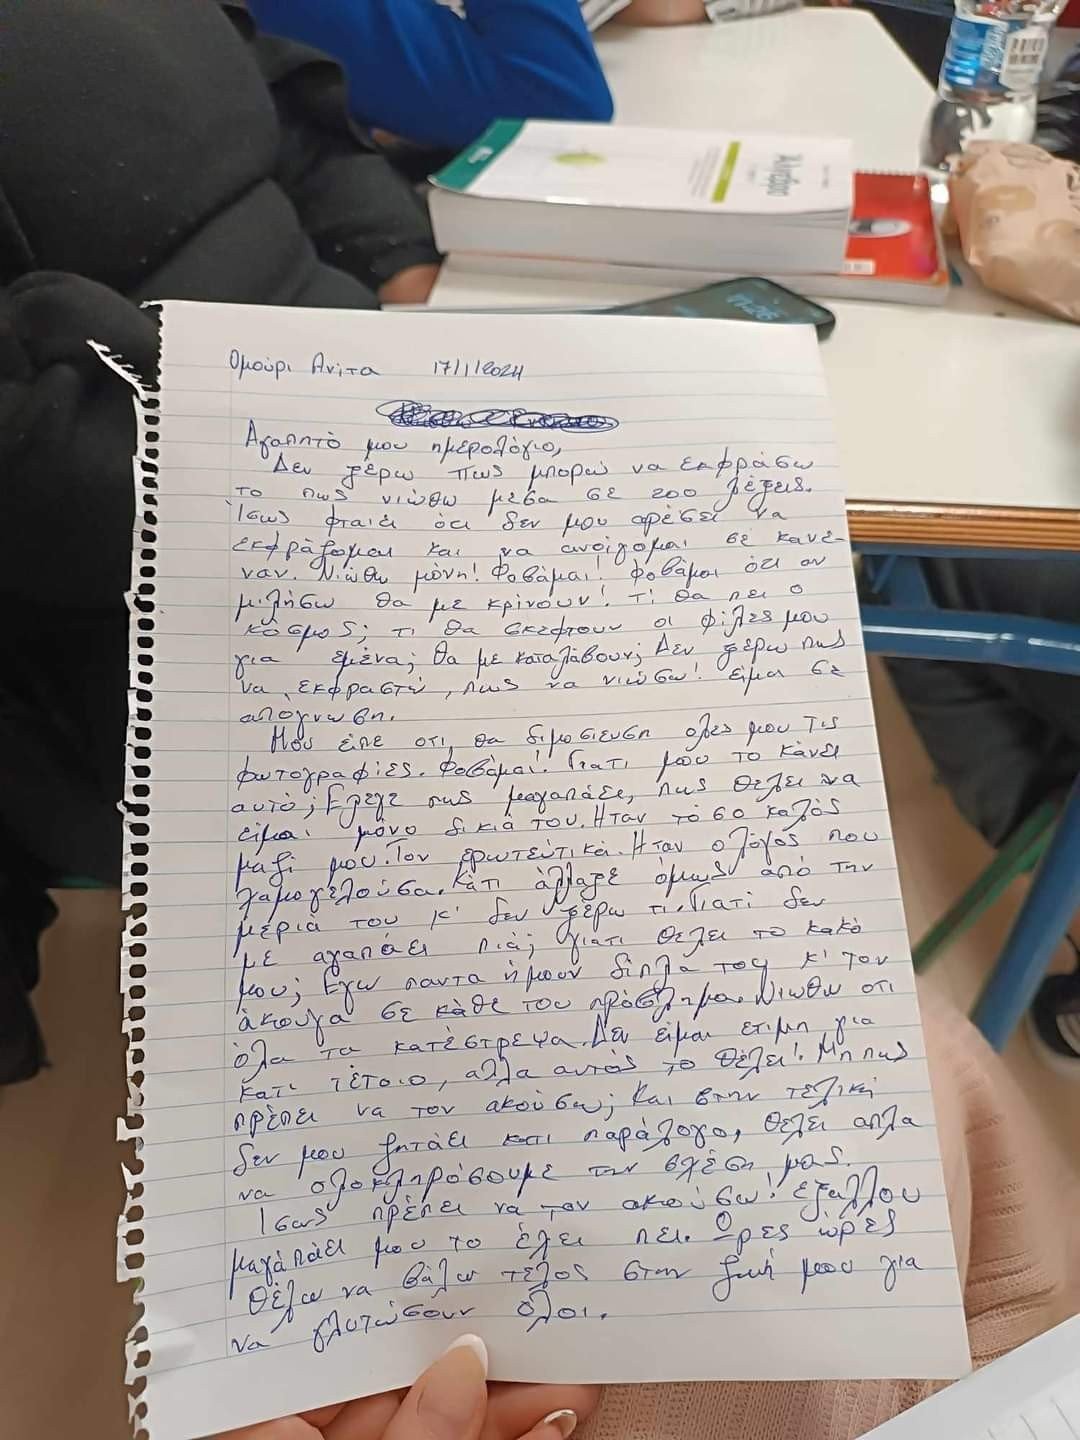 Άλγεβρα
Ομούρι Ανίτα 17/1/2024
Αγαπητό μου ημερολόγιο,
Δεν ξέρω πως μπορώ να εκφράσω
το πως νιώθω μέσα σε 200 λέξεις.
Ίσως φταιεί ότι δεν μου αρέσει να
εκφράζομαι και να ανοίγομαι σε κανέ-
ναν. Νιώθω μόνη! Φοβάμαι! Φοβάμαι ότι αν
μιλήσω θα με κρίνουν! τί θα πει ο
κόσμος; τι θα σκεφτουν οι φίλες μου
για εμένα; θα με καταλάβουν; Δεν ξέρω πως
να εκφραστώ, πως να νιώσω! είμαι σε
απόγνωση.
Μου είπε οτι θα διμοσιευση ολες μου τις
φωτογραφίες. Φοβάμαι! Γιατι μου το κάνει
αυτό; Ελεγε πως μαγαπάει, πως θελει να
είμαι μόνο δικιά του. Ηταν τόσο καλός
μαζί μου. Τον ερωτεύτικα. Ηταν ο λόγος που
χαμογελούσα. Κάτι άλλαξε όμως από την
μεριά του κ' δεν ξέρω τι. Γιατί δεν
με αγαπάει πιά; γιατι θελει το κακό
μου; Εγω παντα ήμουν δίπλα του κ' τον
άκουγα σε κάθε του πρόβλημα. Νιωθω οτι
όλα τα κατέστρεψα. Δεν είμαι ετιμη για
κατι τέτοιο, αλλα αυτός το θέλει! Μηπως
πρέπει να τον ακούσω; Και στην τελική
δεν μου ζητάει κατι παράλογο, θέλει απλα
να ολοκληρόσουμε την σχέση μας.
Ισως πρέπει να τον ακούσω! εξαλλου
μαγάπάει μου το έχει πει. Ωρες ώρες
θέλω να βάλω τέλος στην ζωή μου για
να γλυτώσουν όλοι.